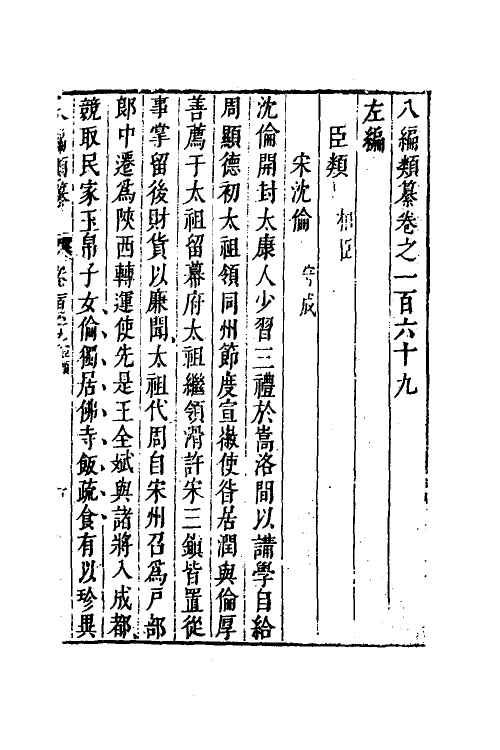 八編類纂卷之一百六十九
左編
臣類 相臣
宋沈倫 守成
沈倫開封太康人少習三禮於嵩洛間以講學自給
周顯德初太祖領同州節度宣徽使昝居潤與倫厚
善薦于太祖留幕府太祖繼領滑許宋三鎮皆置從
事掌留後財貨以廉聞太祖代周自宋州召爲戸部
郎中遷爲陝西轉運使先是王全斌與諸將入成都
競取民家玉帛子女倫獨居佛寺飯疏食有以珍異
八編類纂